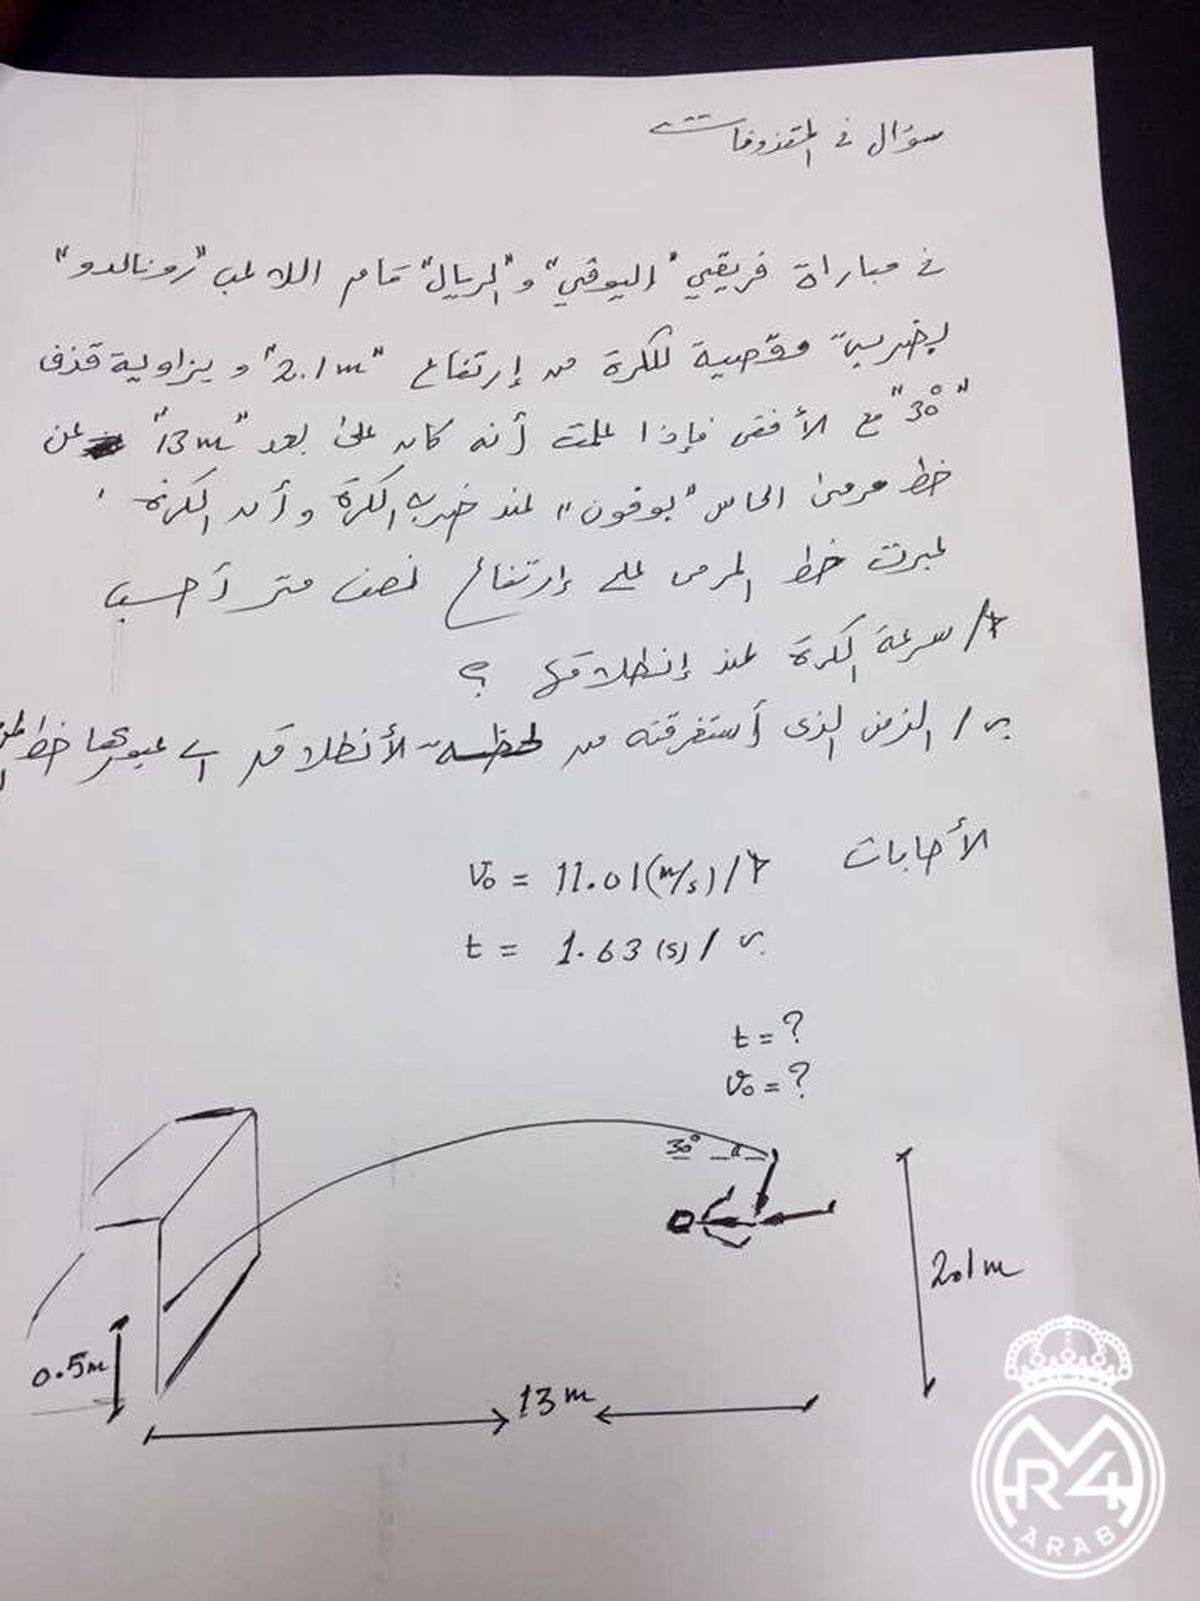 سؤال في المقذوفات
في مباراة فريقي "اليوفي" و"الريال" قام اللاعب "رونالدو"
بضربة مقصية للكرة من إرتفاع "2.1m" و بزاوية قذف
"30°" مع الأفق فإذا علمت أنه كان على بعد "13m" عن
خط مرمى الحارس "بوفون" لمنذ ضربه الكرة وأن الكرة
عبرت خط المرمى على إرتفاع نصف متر أحسب
أ/ سرعة الكرة عند إنطلاقها ؟
ب/ الزمن الذي أستغرقته من لحظة الأنطلاقة الى عبورها خط
الأجابات
V₀ = 11.01 (m/s) /أ
t = 1.63 (s) / ب
t = ?
V₀ = ?
30°
2.1m
0.5m
13m
R4
ARAB